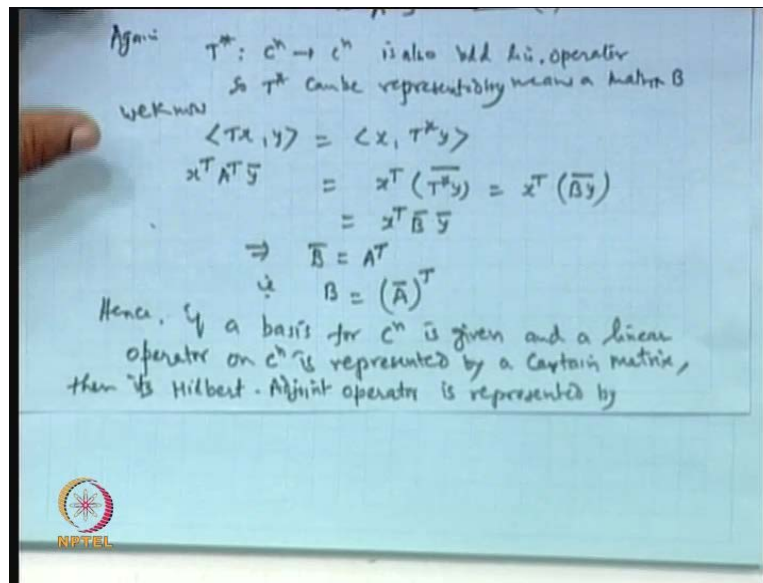 Again T* : C^n → C^n is also bdd lin. operator
So T* can be represented by means a matrix B
we know
<Tx, y> = <x, T*y>
x^T A^T ȳ = x^T (\overline{T*y}) = x^T (\overline{By})
= x^T B̄ ȳ
⇒ B̄ = A^T
ie B = (Ā)^T
Hence, if a basis for C^n is given and a linear
operator on C^n is represented by a Certain matrix,
then its Hilbert-Adjoint operator is represented by
NPTEL